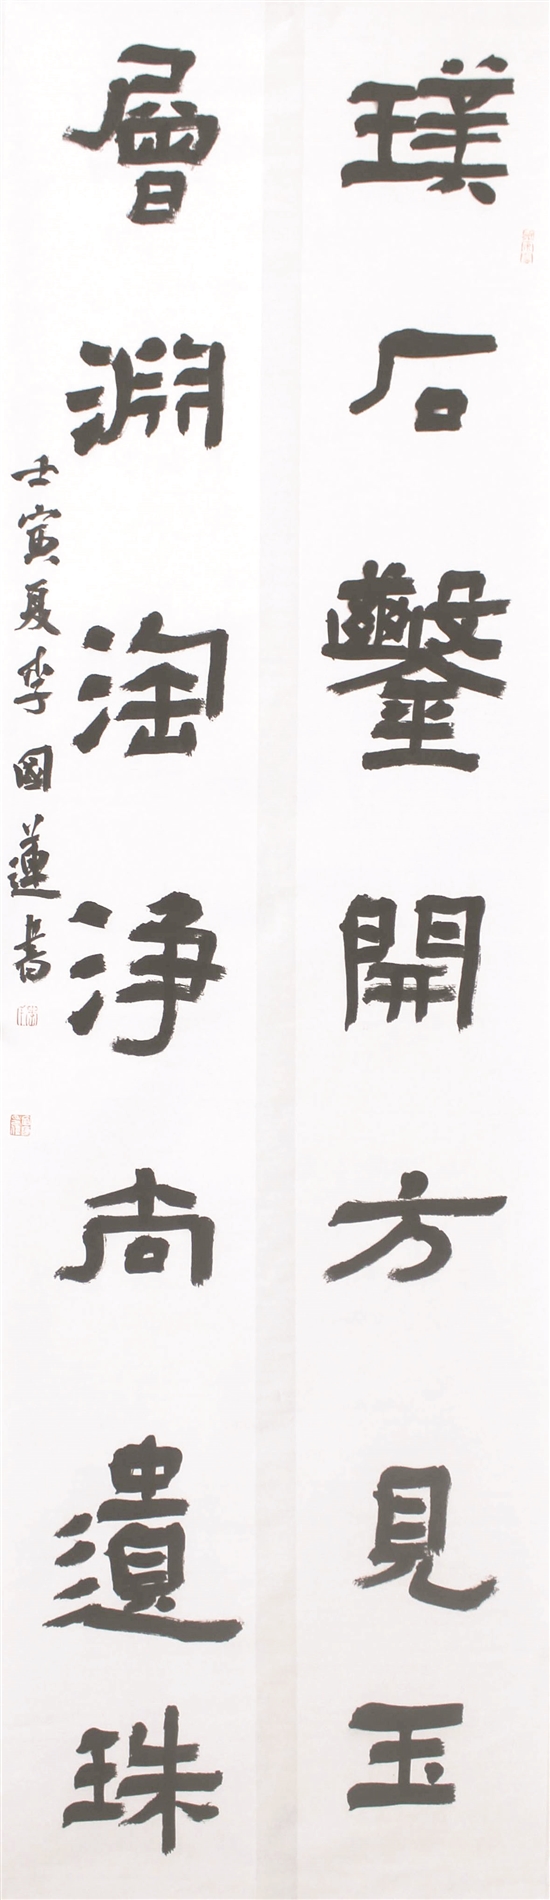 璞石鑿開方見玉
層淵淘淨尚遺珠
壬寅夏李國蓮書